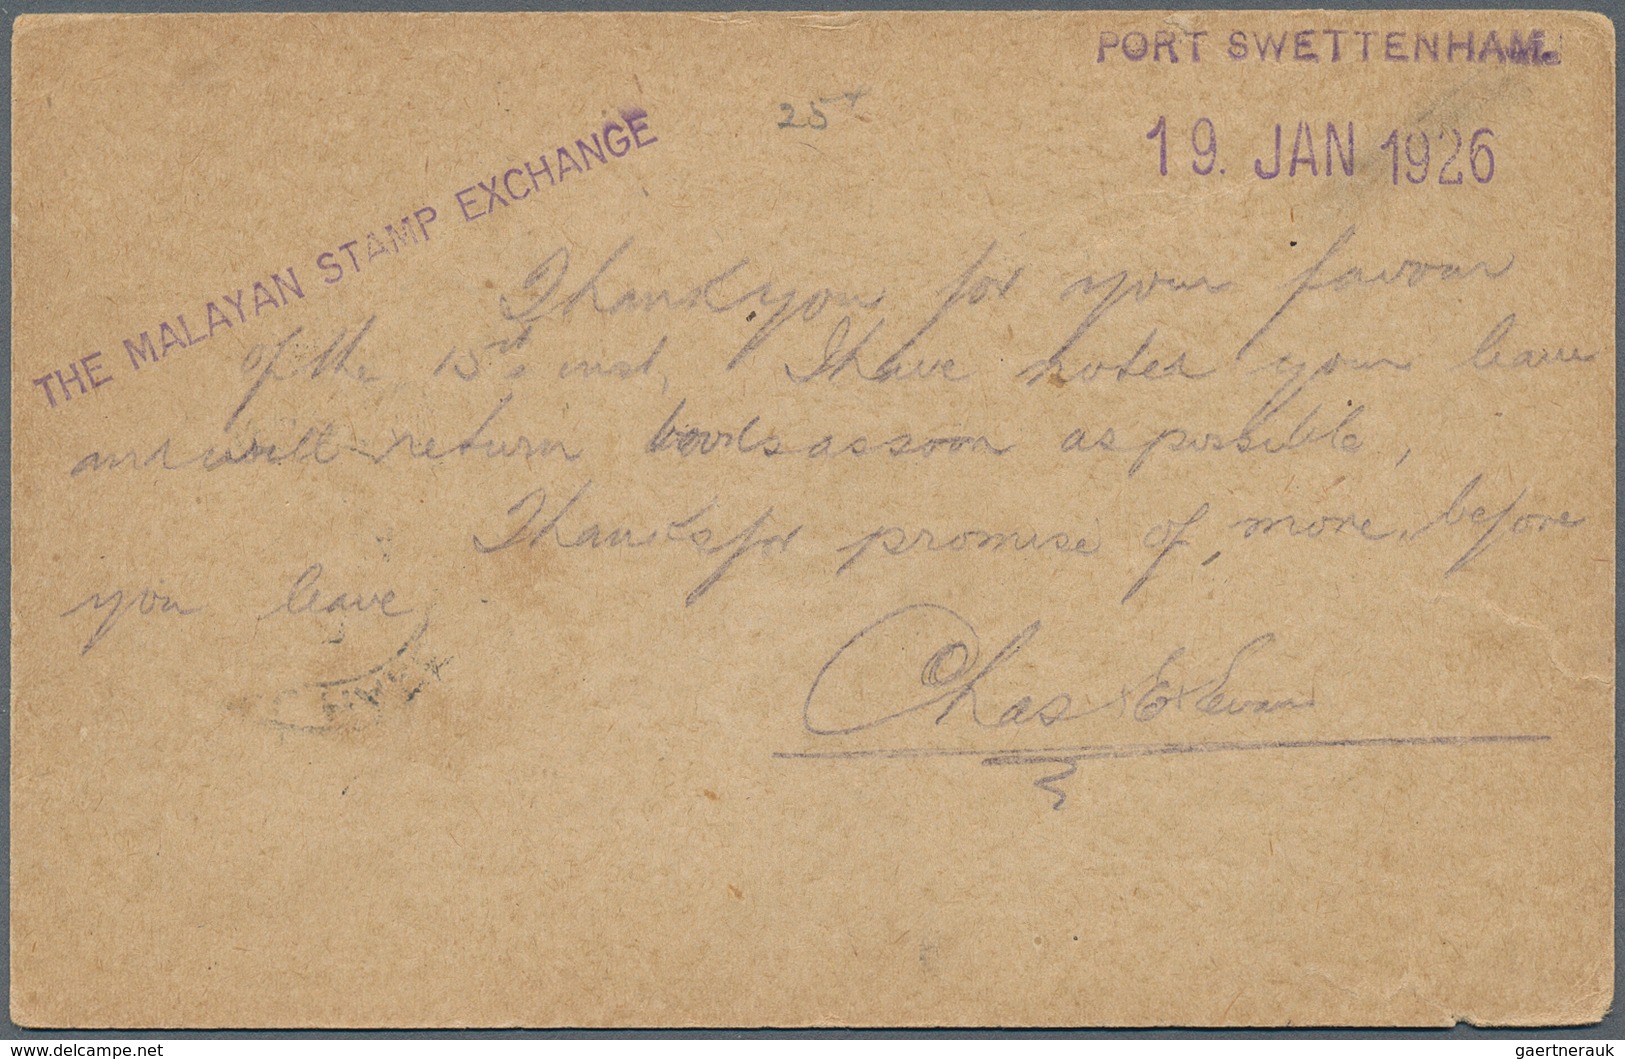 PORT SWETTENHAM.
19. JAN 1926
25
THE MALAYAN STAMP EXCHANGE
Thank you for your favour
of the 15th inst, I have noted your leave
and will return books as soon as possible,
Thanks for promise of, more, before
you leave,
Chas E Evans
© www.delcampe.net
gaertnerauk